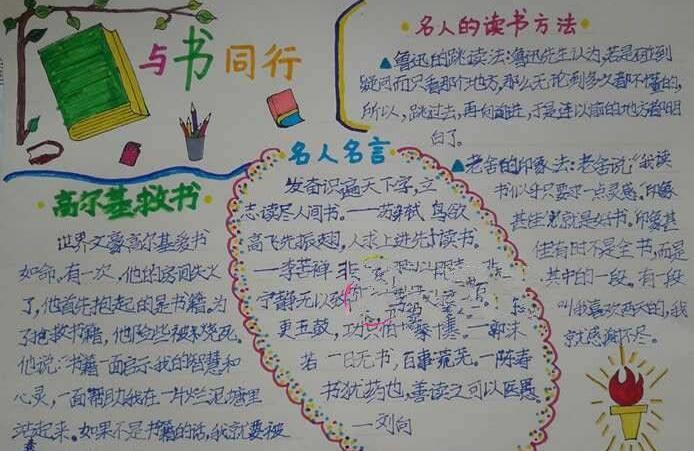 与书同行
名人的读书方法
▲鲁迅的跳读法:鲁迅先生认为,若是碰到
疑问而只看那个地方,那么无论到多久都不懂的,
所以,跳过去,再向前进,于是连以前的地方都明
白了。
▲老舍的印象法:老舍说“我读
书似乎只要求一点灵感。印象
甚佳便就是好书。印象甚
佳有时不是全书,而是
其中的一段。有一段
叫我喜欢两天的,我
就感谢不尽。
名人名言
发奋识遍天下字,立
志读尽人间书。—苏轼 鸟欲
高飞先振翅,人求上进先读书。
—李苦禅 非
宁静无以致
更五鼓,功
若
一日无书,百事荒芜。—陈寿
书犹药也,善读之可以医愚。
—刘向
高尔基救书
世界文豪高尔基爱书
如命。有一次,他的房间失火
了,他首先抱起的是书籍。为
了抢救书籍,他险些被烧死。
他说:“书籍一面启示我的智慧和
心灵,一面帮助我在一片烂泥塘里
站起来。如果不是书籍的话,我就要被